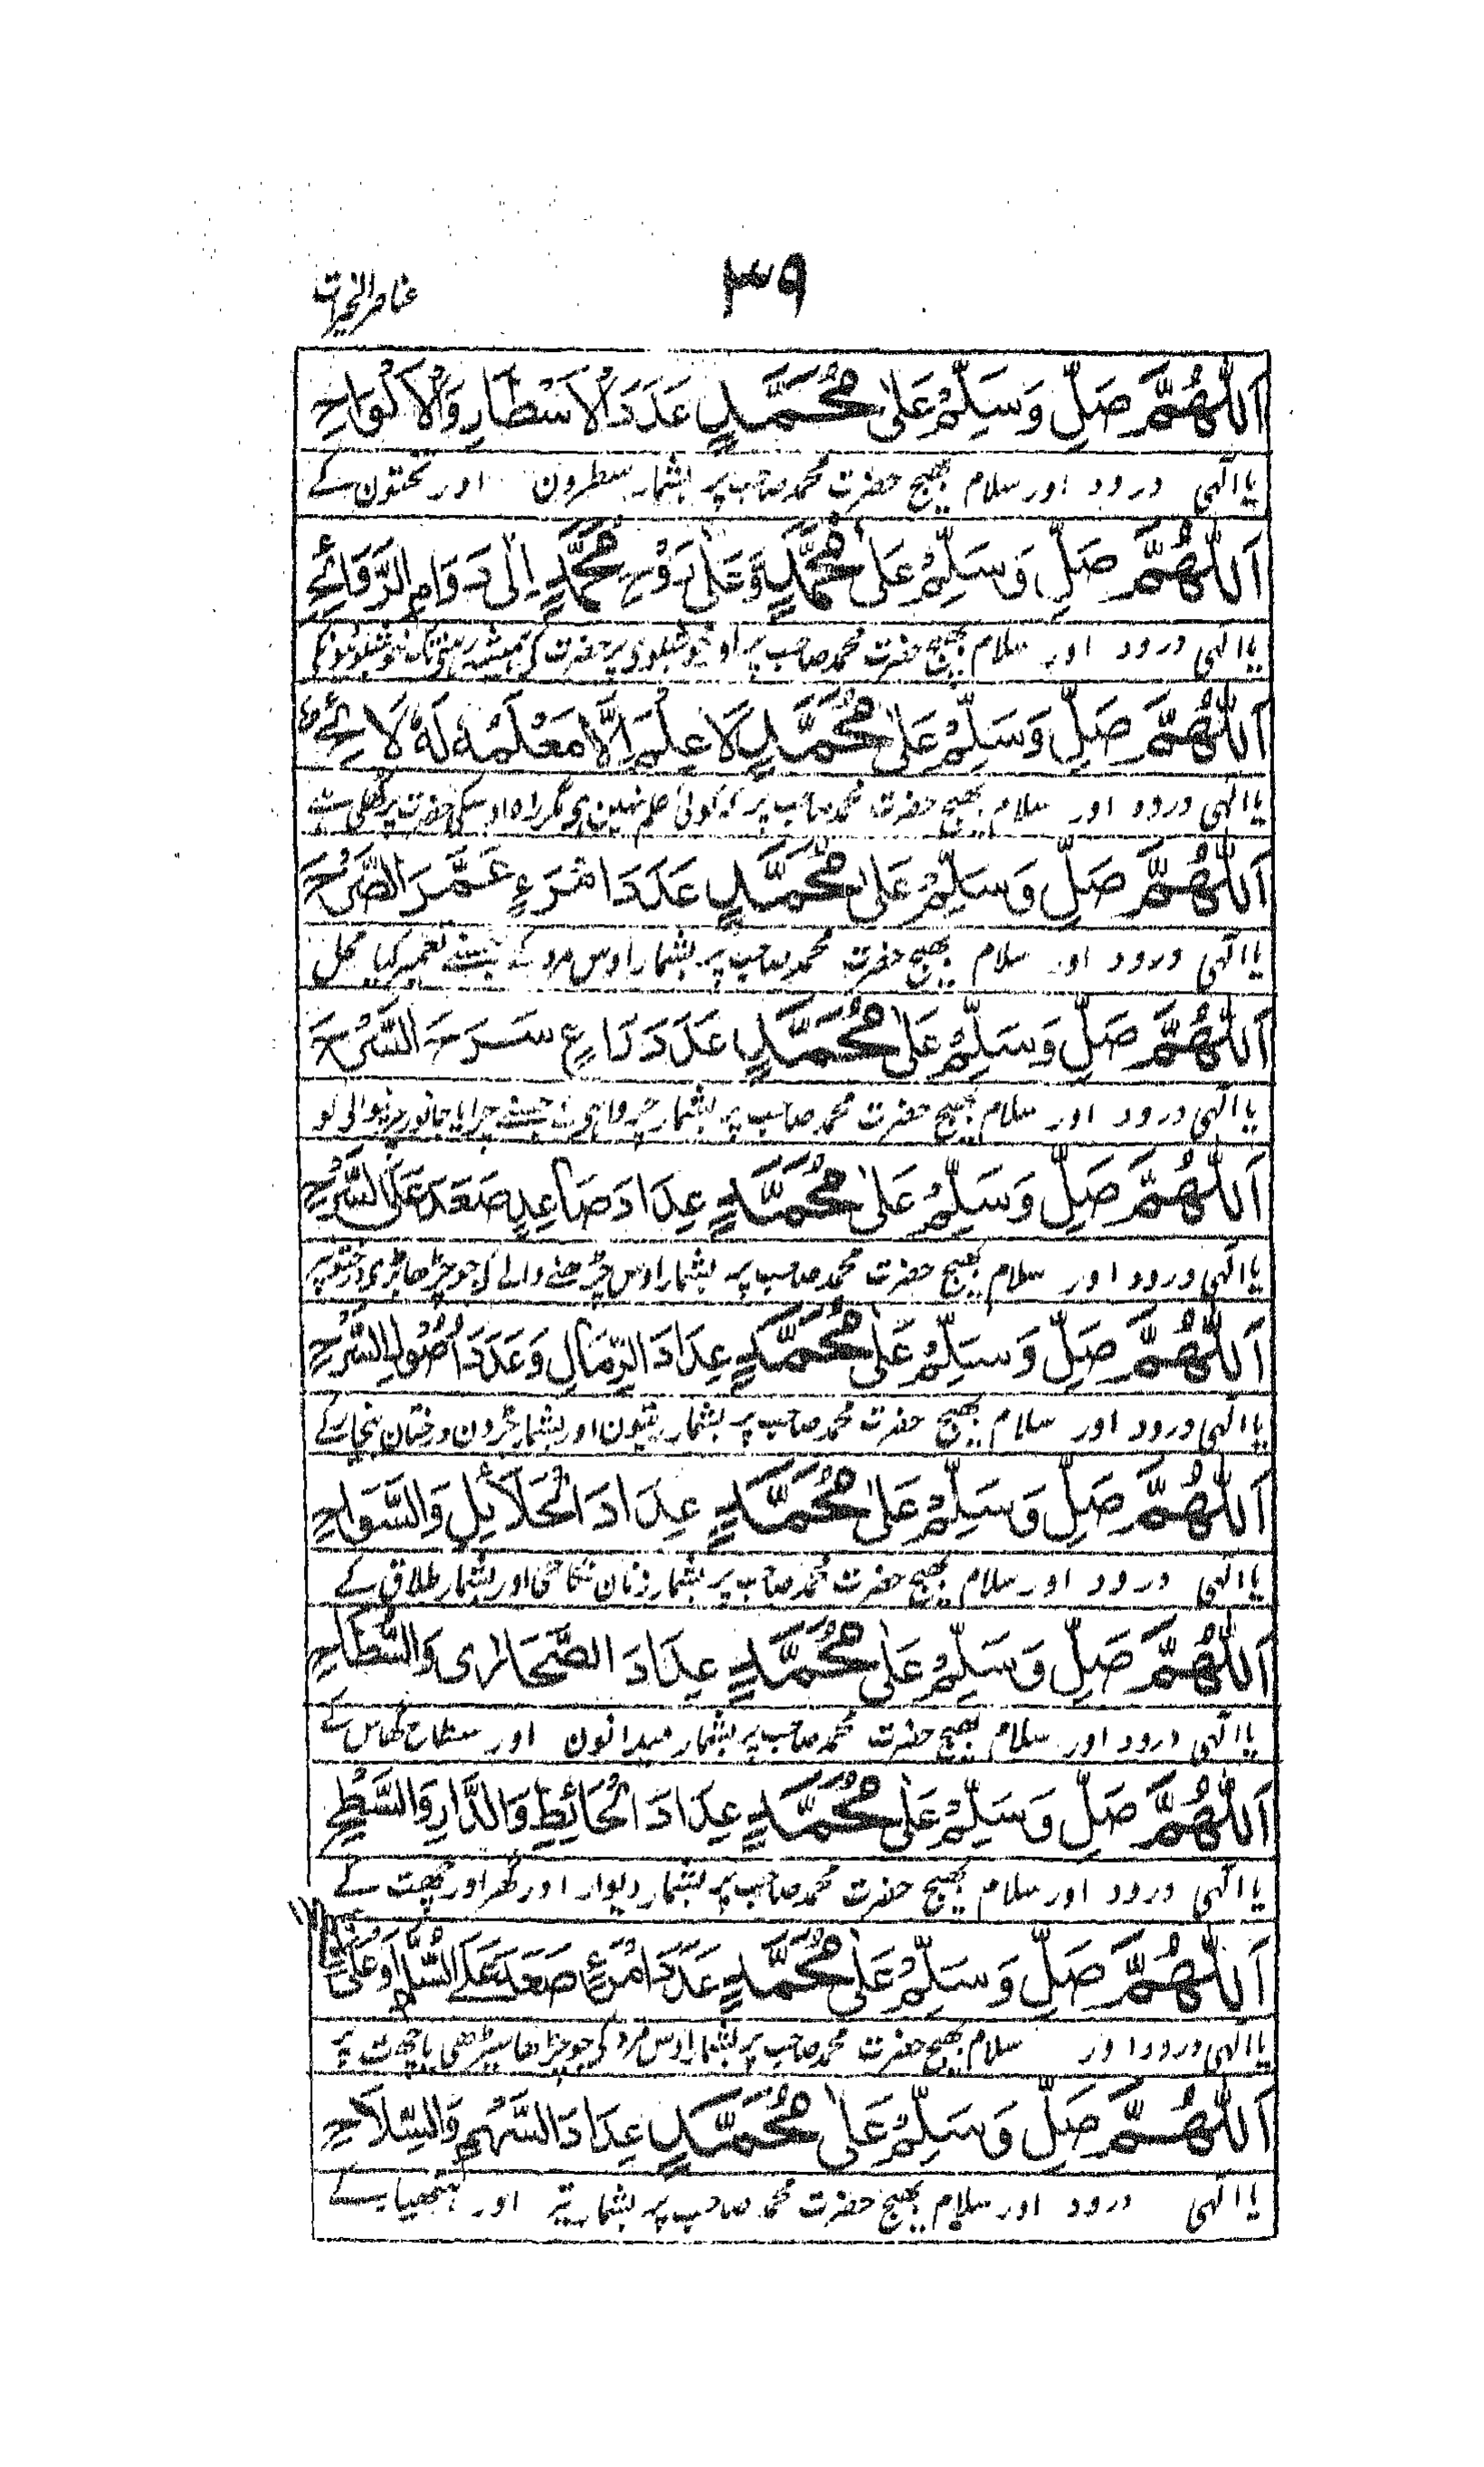 ۳۹
عناصر الخیرات
اَللّٰهُمَّ صَلِّ وَسَلِّمْ عَلٰى مُحَمَّدٍ عَدَدَ الْاَسْطَارِ وَالْاَلْوَاحِ
یا الٰہی درود اور سلام بھیج حضرت محمد صاحب پر بشمار سطرون اور تختون کے
اَللّٰهُمَّ صَلِّ وَسَلِّمْ عَلٰى مُحَمَّدٍ وَّعَلٰى رَوْحِ مُحَمَّدٍ اِلٰى دَوَامِ الرَّوَائِحِ
یا الٰہی درود اور سلام بھیج حضرت محمد صاحب پر اور خوشبوی پر حضرت کی ہمیشہ رہنی تک خوشبوئونکی
اَللّٰهُمَّ صَلِّ وَسَلِّمْ عَلٰى مُحَمَّدٍ لَا عِلْمَ اِلَّا مَعْلَمُهٗ لَهٗ لَائِحٌ
یا الٰہی درود اور سلام بھیج حضرت محمد صاحب پر کہ کوئی علم نہین ہی مگر راہ اوسکی حضرت پر کھلی ہے
اَللّٰهُمَّ صَلِّ وَسَلِّمْ عَلٰى مُحَمَّدٍ عَدَدَ امْرَءٍ عَمَّرَ الصَّرْحَ
یا الٰہی درود اور سلام بھیج حضرت محمد صاحب پر بشمار اوس مرد کے جسنے تعمیر کیا محل
اَللّٰهُمَّ صَلِّ وَسَلِّمْ عَلٰى مُحَمَّدٍ عَدَدَ رَاعٍ سَرَحَ السَّرْحَ
یا الٰہی درود اور سلام بھیج حضرت محمد صاحب پر بشمار چرواہون جسنے چرایا جانور چرنیوالی کو
اَللّٰهُمَّ صَلِّ وَسَلِّمْ عَلٰى مُحَمَّدٍ عِدَادَ صَاعِدٍ صَعَدَ عَلَى السَّرْحِ
یا الٰہی درود اور سلام بھیج حضرت محمد صاحب پر بشمار اوس چڑھنے والے کی جو چڑھا بڑی درختو پر
اَللّٰهُمَّ صَلِّ وَسَلِّمْ عَلٰى مُحَمَّدٍ عِدَادَ الرِّمَالِ وَعَدَدَ اُصُوْلِ السَّرْحِ
یا الٰہی درود اور سلام بھیج حضرت محمد صاحب پر بشمار ریتیون اور بشمار جڑون درختان کے
اَللّٰهُمَّ صَلِّ وَسَلِّمْ عَلٰى مُحَمَّدٍ عِدَادَ الْحَلَائِلِ وَالسَّوَاحِ
یا الٰہی درود اور سلام بھیج حضرت محمد صاحب پر بشمار زنان نکاحی اور بشمار طلاق کے
اَللّٰهُمَّ صَلِّ وَسَلِّمْ عَلٰى مُحَمَّدٍ عِدَادَ الصَّحَارٰى وَالسُّطَّاحِ
یا الٰہی درود اور سلام بھیج حضرت محمد صاحب پر بشمار میدانون اور سطاح گھاس کے
اَللّٰهُمَّ صَلِّ وَسَلِّمْ عَلٰى مُحَمَّدٍ عِدَادَ الْحَائِطِ وَالدَّارِ وَالسَّطْحِ
یا الٰہی درود اور سلام بھیج حضرت محمد صاحب پر بشمار دیوار اور گھر اور چھت کے
اَللّٰهُمَّ صَلِّ وَسَلِّمْ عَلٰى مُحَمَّدٍ عَدَدَ امْرَءٍ صَعَدَ عَلَى السُّلَّمِ اَوْ عَلٰى
یا الٰہی درود اور سلام بھیج حضرت محمد صاحب پر بشمار اوس مرد کی جو چڑھا سیڑھی یا چھت پر
اَللّٰهُمَّ صَلِّ وَسَلِّمْ عَلٰى مُحَمَّدٍ عِدَادَ السَّهْمِ وَالسِّلَاحِ
یا الٰہی درود اور سلام بھیج حضرت محمد صاحب پر بشمار تیر اور ہتھیار کے